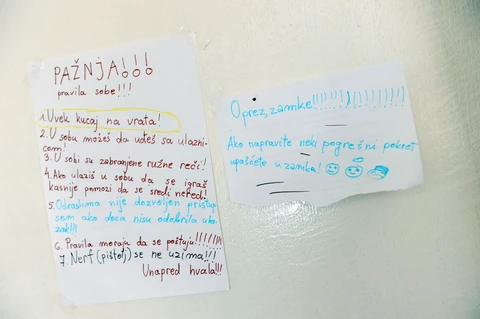 PAŽNJA!!!
pravila sobe!!!
1. Uvek kucaj na vrata!
2. U sobu možeš da uđeš sa ulazni-
com!
3. U sobi su zabranjene ružne reči!
4. Ako ulaziš u sobu da se igraš
kasnije pomozi da se sredi nered!
5. Odraslima nije dozvoljen pristup
sem ako deca nisu odobrila ula-
zak!!!
6. Pravila moraju da se poštuju!!!!!!!!
7. Nerf (pištolj) se ne uzima!!!
Unapred hvala!!!
Oprez, zamke!!!!!!!!!!!!!!!
Ako napravite neki pogrešni pokret
upašćete u zamku!